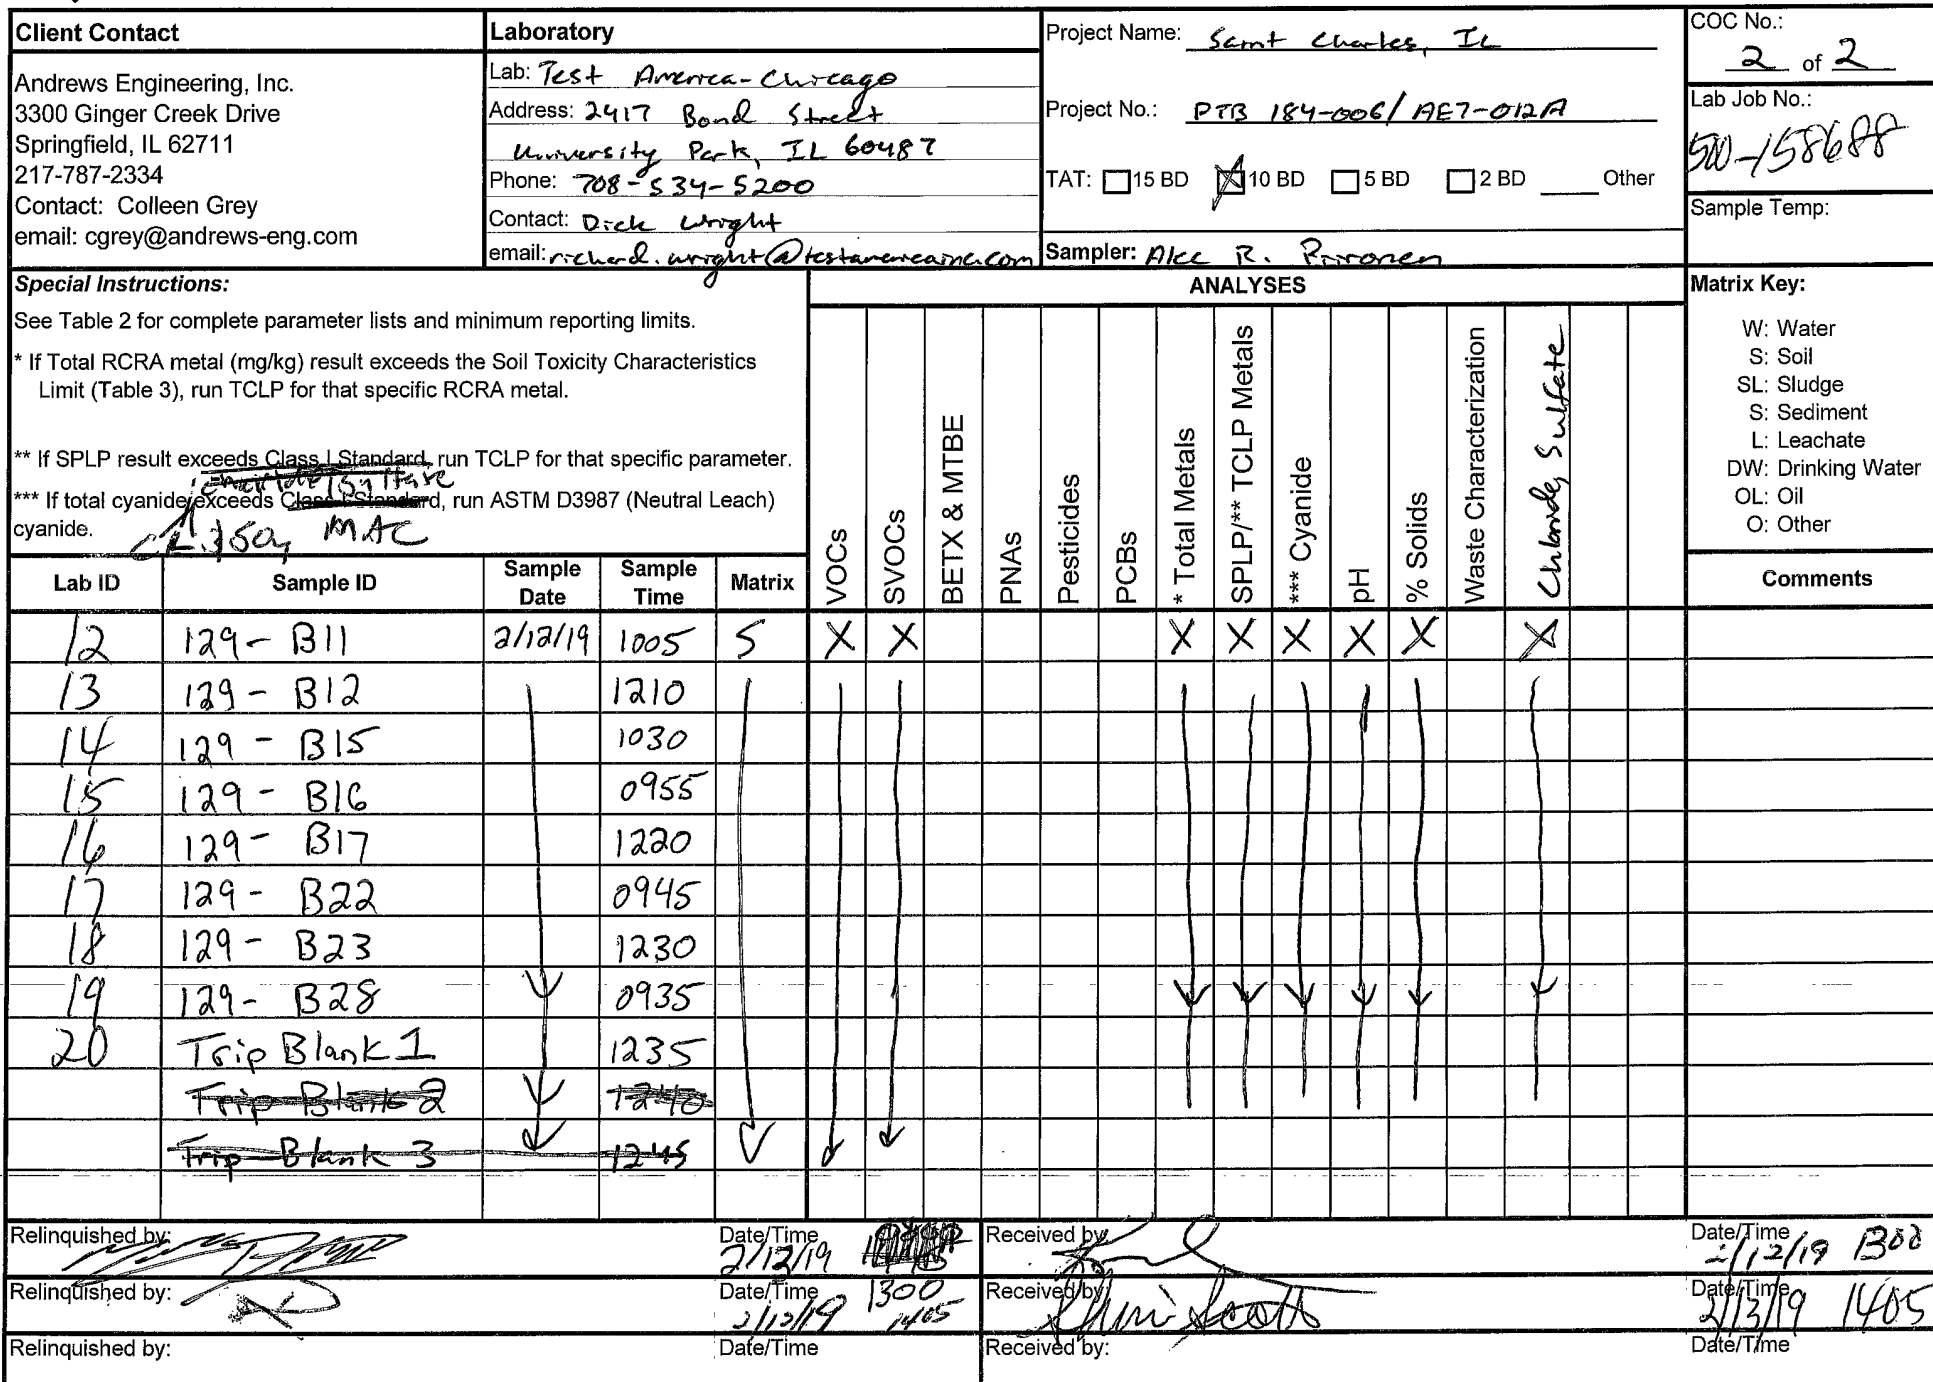 Client Contact
Andrews Engineering, Inc.
3300 Ginger Creek Drive
Springfield, IL 62711
217-787-2334
Contact: Colleen Grey
email: cgrey@andrews-eng.com
Laboratory
Lab: Test America-Chicago
Address: 2417 Bond Street
University Park, IL 60487
Phone: 708-534-5200
Contact: Dick Wright
email: richard.wright@testamericainc.com
Project Name: Saint Charles, IL
Project No.: PTB 184-006/AE7-012A
TAT: 15 BD 10 BD 5 BD 2 BD Other
Sampler: Alec R.
COC No.:
2 of 2
Lab Job No.:
500-158688
Sample Temp:
Special Instructions:
See Table 2 for complete parameter lists and minimum reporting limits.
* If Total RCRA metal (mg/kg) result exceeds the Soil Toxicity Characteristics
Limit (Table 3), run TCLP for that specific RCRA metal.
** If SPLP result exceeds Class I Standard, run TCLP for that specific parameter.
*** If total cyanide exceeds Class I Standard, run ASTM D3987 (Neutral Leach)
cyanide.
MAC
ANALYSES
VOCs
SVOCs
BETX & MTBE
PNAs
Pesticides
PCBs
* Total Metals
SPLP/** TCLP Metals
*** Cyanide
pH
% Solids
Waste Characterization
Chloride, Sulfate
Matrix Key:
W: Water
S: Soil
SL: Sludge
S: Sediment
L: Leachate
DW: Drinking Water
OL: Oil
O: Other
Lab ID Sample ID Sample Date Sample Time Matrix Comments
12 129- B11 2/12/19 1005 S X X X X X X X X
13 129- B12 1210
14 129- B15 1030
15 129- B16 0955
16 129- B17 1220
17 129- B22 0945
18 129- B23 1230
19 129- B28 0935
20 Trip Blank 1 1235
Trip Blank 2 1240
Trip Blank 3 1245
Relinquished by: Date/Time 2/12/19 Received by Date/Time 2/12/19 1300
Relinquished by: Date/Time 2/12/19 1300 1405 Received by Scott Date/Time 2/13/19 1405
Relinquished by: Date/Time Received by: Date/Time